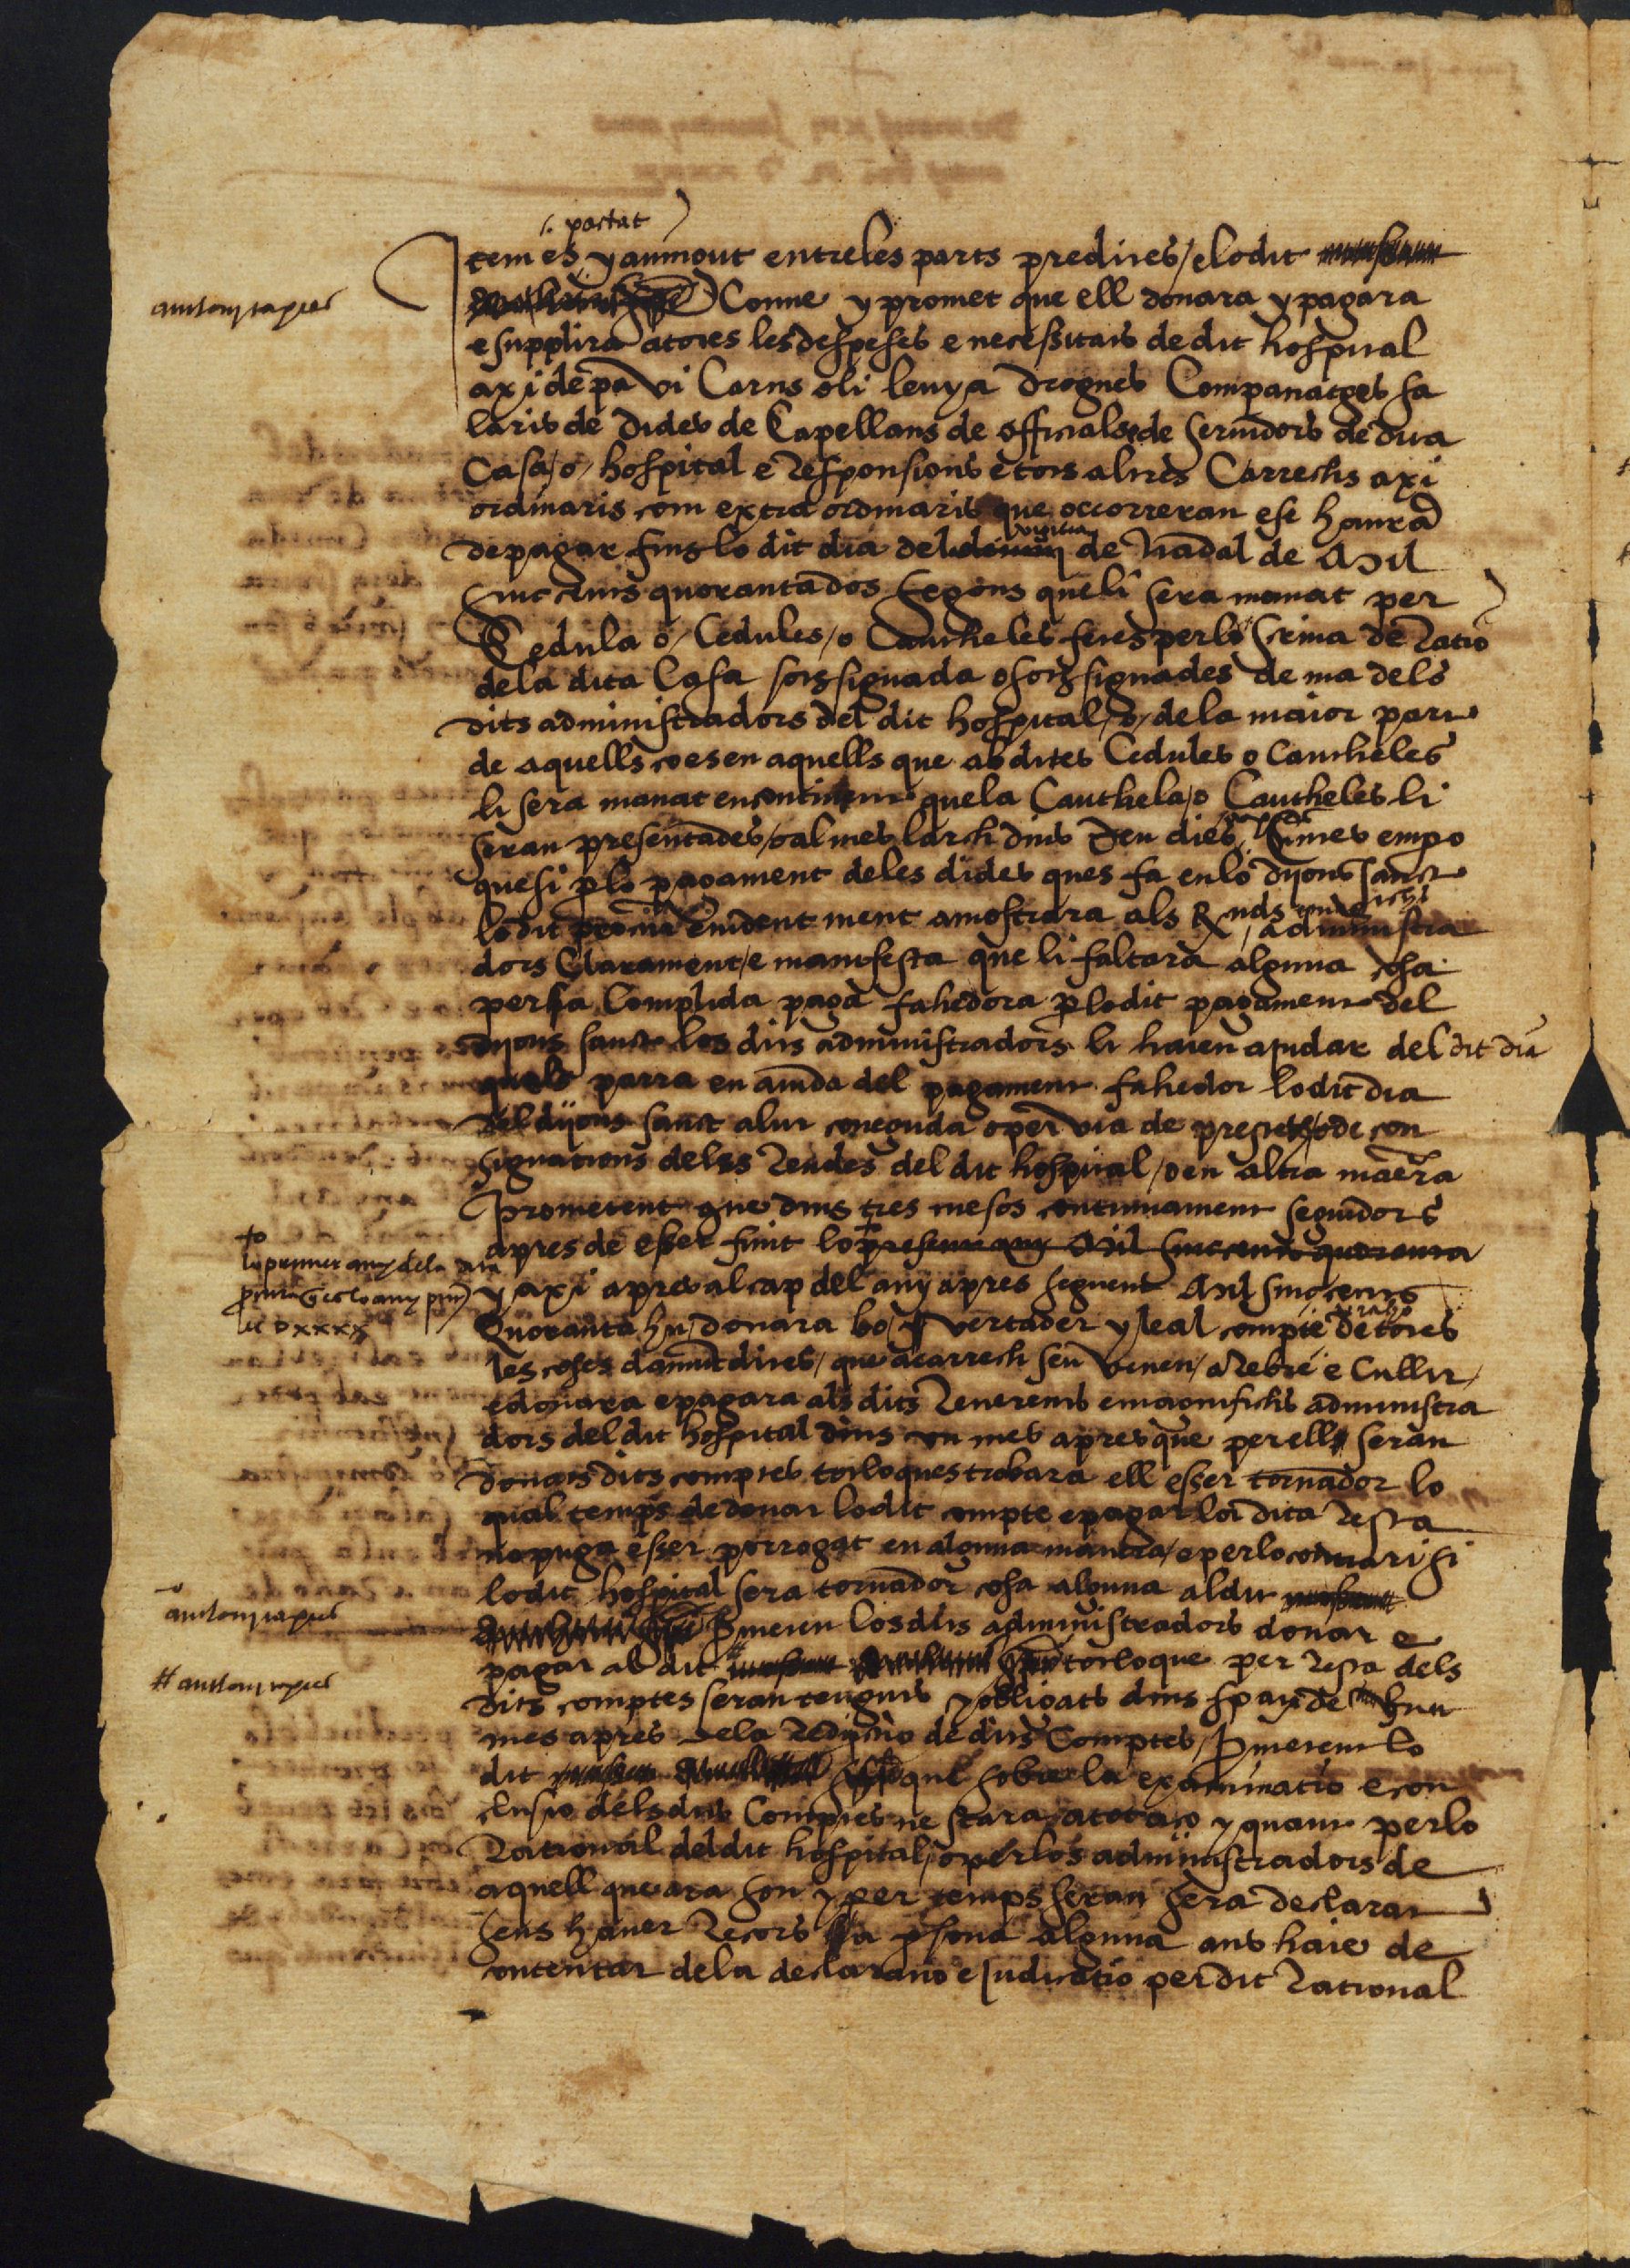 pactat
Item es y auingut entre les parts predites / e lo dit
antony tapies
Conue y promet que ell donara y pagara
e supplira a totes les despeses e necessitats de dit hospital
axi de pa vi Carns oli lenya drogues Companatges sa
laris de dides de Capellans de officials e de seruidors de dita
Casa / o / hospital e responsions e tots altres Carrechs axi
ordinaris com extraordinaris que occorreran e se haura
de pagar fins lo dit dia de la vigilia de nadal de Mil
Sinc cents quoranta dos segons que li sera manat per
Cedula o / Cedules / o Cautheles fetes per lo scriua de ratio
de la dita Casa sotssignada o sotssignades de ma dels
dits administradors del dit hospital / o / de la maior part
de aquells co es en aquells que ab dites Cedules o Cautheles
li sera manat encontinent que la Cauthela / o Cautheles li
seran presentades / o al mes larch dins deu dies / Entes empo
que si per lo pagament de les dides ques fa en lo dijous sanct
lo dit euident ment amostrara als Rnds administra
dors Clarament / e manifesta que li faltara alguna cosa
per sa Complida paga fahedora per lo dit pagament del
dijous sanct los dits administradors li haien ajudar del dit dia
parra en aiuda del pagament fahedor lo dit dia
del dijous sanct a lur coneguda o per via de prestets / o de con
signacions dels rendes del dit hospital / o en altra manera
prometent que dins tres mesos continuament seguidors
apres de esser finit lo present any Mil sinc cents quoranta
lo primer any de la
MDXXXX
y axi apres al cap del any apres seguent Mil sinc cents
Quoranta hu / donara bo / vertader y leal compte de totes
les coses damunt dites / que a carrech seu venen / a rebre e Cullir /
e donara e pagara als dits Reuerents e magnifichs administra
dors del dit hospital dins vn mes apres que per ell seran
donats dits comptes tot lo ques trobara ell esser tornador lo
qual temps de donar lo dit compte e pagar la dita resta
no puga esser prorrogat en alguna manera / e per lo contrari si
lo dit hospital sera tornador cosa alguna al dit
antony tapies
prometen los dits administradors donar e
pagar al dit tot lo que per resta dels
# antony tapies
dits comptes seran tenguts y obligats dins spay de hun
mes apres de la redditio de dits Comptes / prometent lo
dit que sobre la examinatio e con
clusio dels dits Comptes ne stara a tot aço y quant per lo
Rational del dit hospital / o per los administradors de
aquell que ara son y per temps seran sera declarat
sens hauer recors a persona alguna ans haie de
contentar de la declaratio e Judicatio per dit Rational